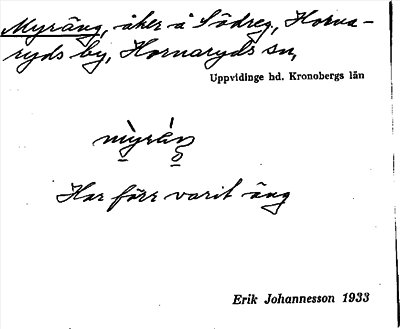 Myräng, åker å Södreg, Horna-
ryds by, Hornaryds sn,
Uppvidinge hd. Kronobergs län
Har förr varit äng
Erik Johannesson 1933